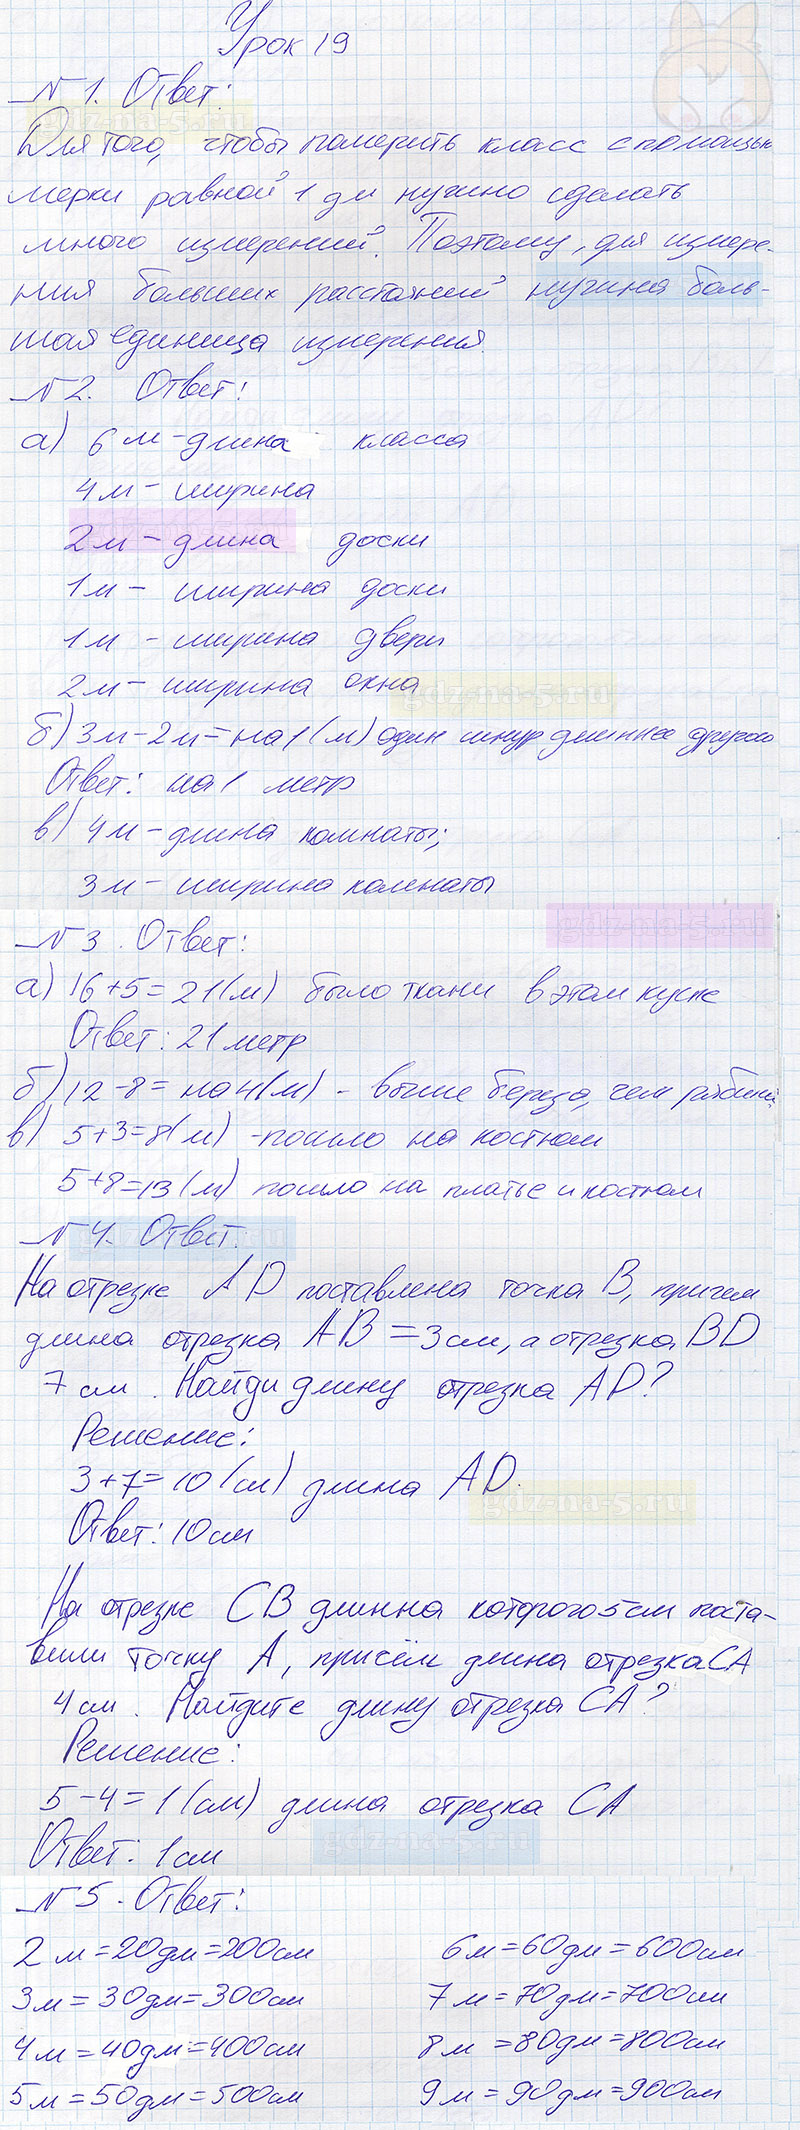 Урок 19
№1. Ответ:
Для того, чтобы померить класс с помощью
мерки равной 1 дм нужно сделать
много измерений. Поэтому, для измере-
ния больших расстояний нужна боль-
шая единица измерения.
№2. Ответ:
а) 6 м - длина класса
4м - ширина
2м - длина доски
1м - ширина доски
1м - ширина двери
2м - ширина окна
б) 3м - 2м = на 1 (м) один шнур длиннее другого
Ответ: на 1 метр
в) 4м - длина комнаты;
3м - ширина комнаты
№3. Ответ:
а) 16+5=21(м) было ткани в этом куске
Ответ: 21 метр
б) 12-8= на 4(м) - выше береза, чем рябина
в) 5+3=8(м) - пошло на костюм
5+8=13(м) пошло на платье и костюм
№4. Ответ.
На отрезке AD поставлена точка B, причем
длина отрезка AB = 3см, а отрезка BD
7 см. Найди длину отрезка AD?
Решение:
3+7=10(см) длина AD.
Ответ: 10см
На отрезке CB длинна которого 5см поста-
вили точку A, причём длина отрезка CA
4см. Найдите длину отрезка CA?
Решение:
5-4=1(см) длина отрезка CA
Ответ: 1см
№5. Ответ:
2 м = 20дм = 200см 6м = 60дм = 600см
3м = 30дм = 300см 7м = 70дм = 700см
4м = 40дм = 400см 8м = 80дм = 800см
5м = 50дм = 500см 9м = 90дм = 900см
gdz-na-5.ru
gdz-na-5.ru
gdz-na-5.ru
gdz-na-5.ru